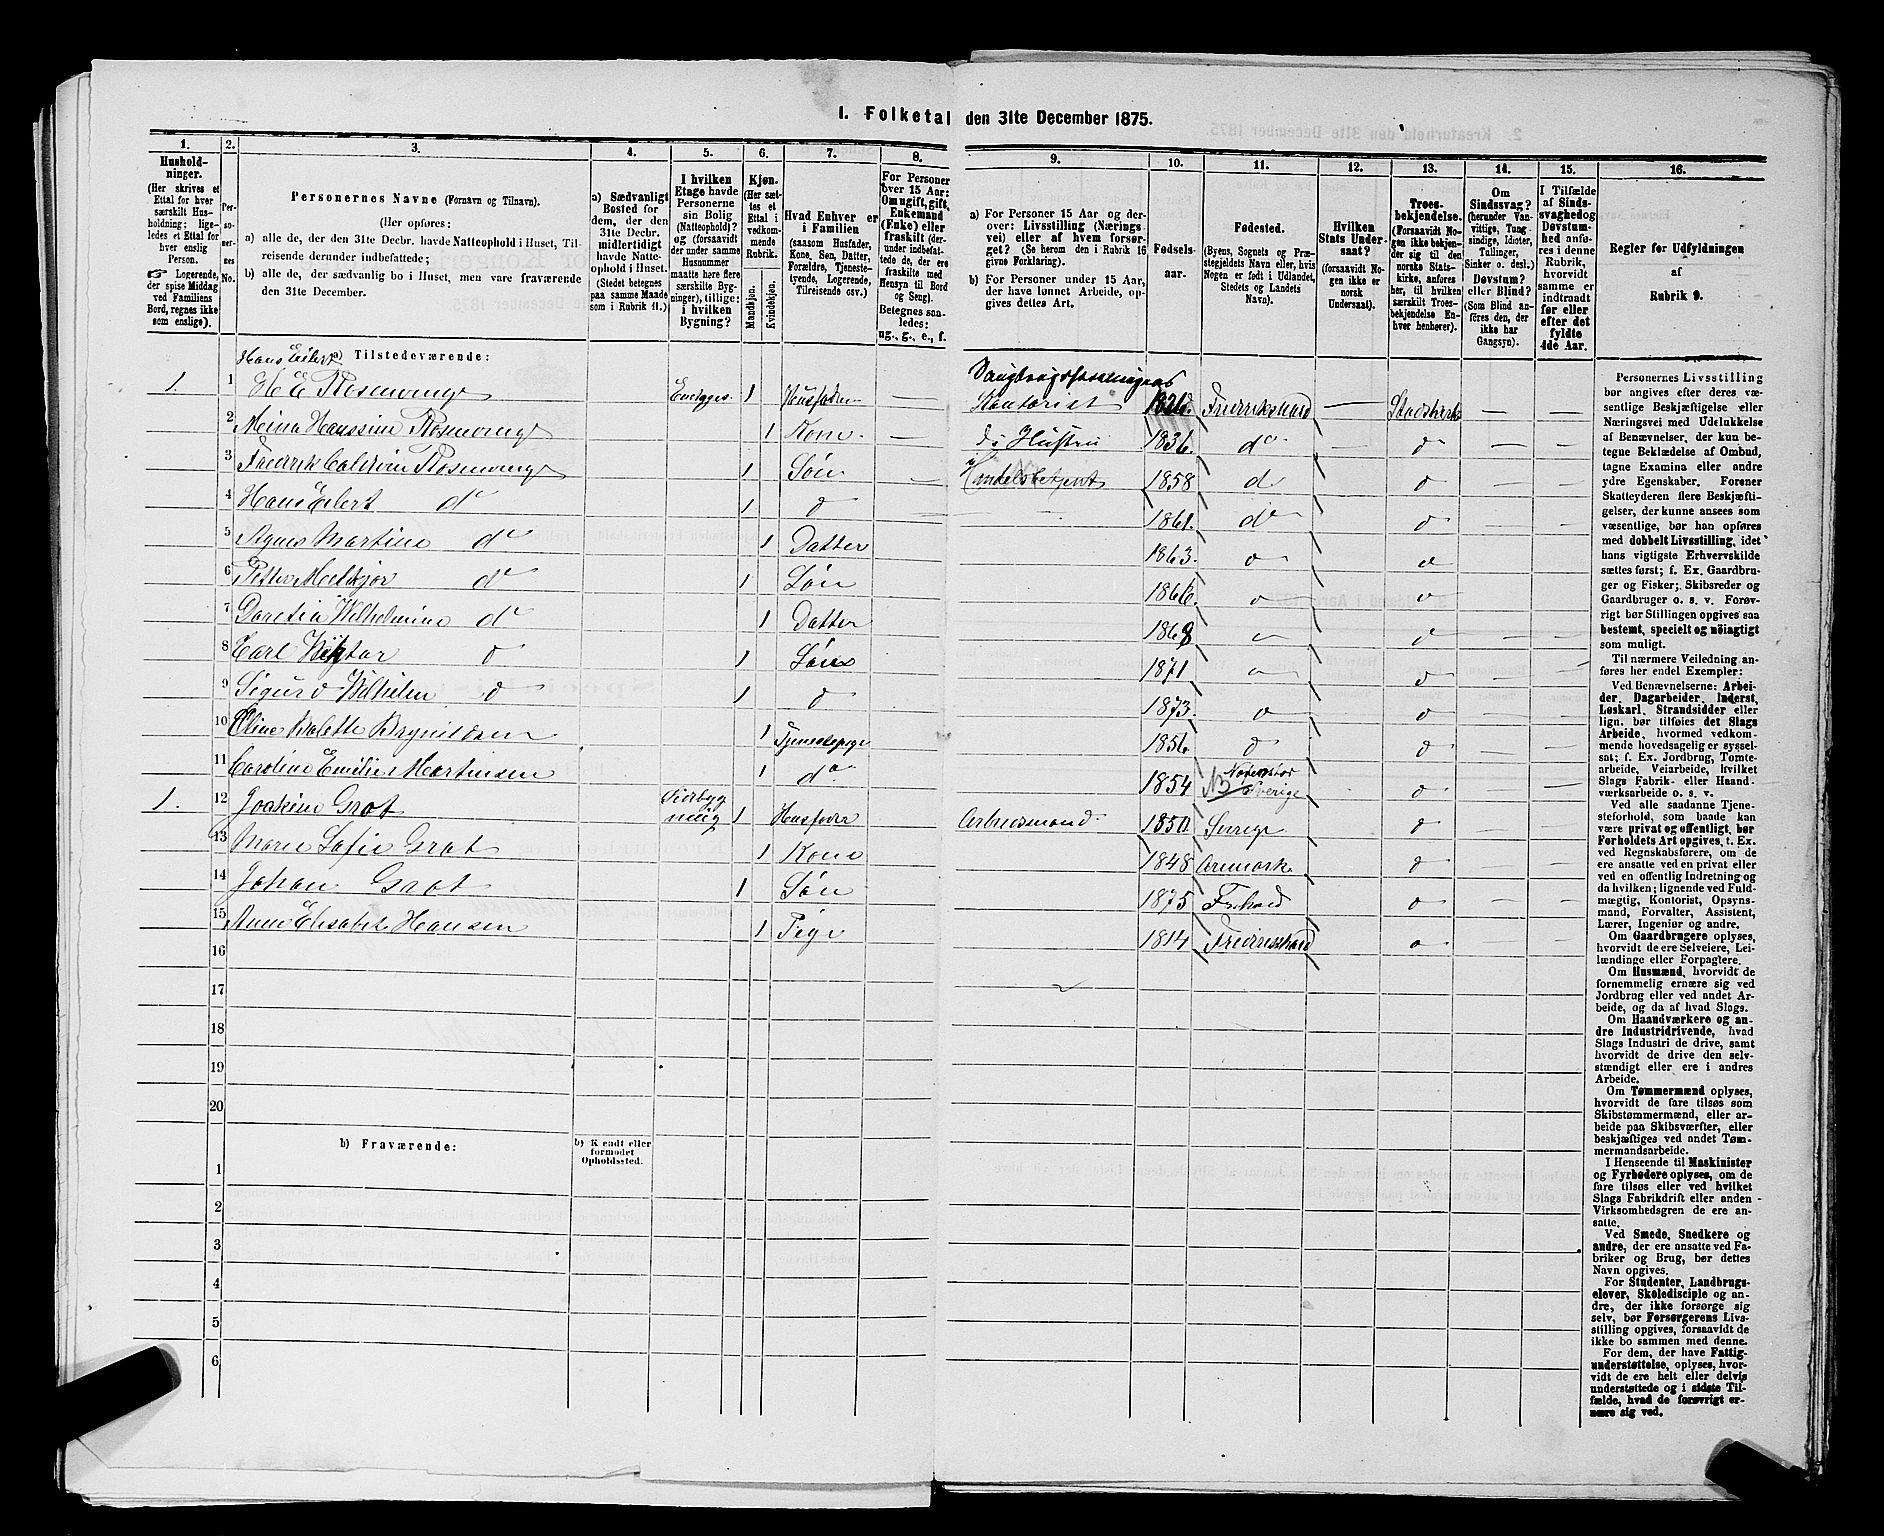 1. Folketal den 31te December 1875.
1. 2. 3. 4. 5. 6. 7. 8. 9. 10. 11. 12. 13. 14. 15. 16.
Hushold-
ninger.
(Her skrives et
Ettal for hver
særskilt Hus-
holdning; lige-
ledes et Ettal for
hver enslig
Person.
☞ Logerende,
der spise Middag
ved Familiens
Bord, regnes ikke
som enslige).
Per-
so-
ner-
nes
No.
Personernes Navne (Fornavn og Tilnavn).
(Her opføres:
a) alle de, der den 31te Decbr. havde Natteophold i Huset, Til-
reisende derunder indbefattede;
b) alle de, der sædvanlig bo i Huset, men vare fraværende
den 31te December.
a) Sædvanligt
Bosted for
dem, der den
31te Decbr.
midlertidigt
havde Natte-
ophold i Huset.
(Stedet betegnes
paa samme Maade
som i Rubrik 11.)
I hvilken
Etage havde
Personerne
sin Bolig
(Natteophold)?
og (forsaavidt
der under samme
Husnummer
maatte høre flere
særskilte Byg-
ninger), tillige:
i hvilken
Bygning?
Kjøn.
(Her sæt-
tes et
Ettal i
vedkom-
mende
Rubrik.
Mandkjøn.
Kvindekjøn.
Hvad Enhver er
i Familien
(saasom Husfader,
Kone, Søn, Datter,
Forældre, Tjeneste-
tyende, Logerende,
Tilreisende osv.)
For Personer
over 15 Aar:
Om ugift, gift,
Enkemand
(Enke) eller
fraskilt (der-
under indbefat-
tede de, der ere
fraskilte med
Hensyn til Bord
og Seng).
Betegnes saa-
ledes:
ug., g., e., f.
a) For Personer 15 Aar og der-
over: Livsstilling (Nærings-
vei) eller af hvem forsør-
get? (Se herom den i Rubrik 16
givne Forklaring).
b) For Personer under 15 Aar,
der have lønnet Arbeide, op-
gives dettes Art.
Fødsels-
aar.
Fødested.
(Byens, Sognets og Præ-
stegjeldets Navn eller, hvis
Nogen er født i Udlandet,
Stedets og Landets
Navn).
Hvilken
Stats Under-
saat?
(forsaavidt No-
gen ikke er
norsk
Undersaat).
Troes-
bekjendelse.
(Forsaavidt No-
gen ikke bekjen-
der sig til den
norske Stats-
kirke, anføres
her, til hvilken
særskilt Troes-
bekjendelse En-
hver henhører).
Om
Sindssvag?
(herunder Van-
vittige, Tung-
sindige, Idioter,
Tullinger,
Sinker o. desl.)
Døvstum?
eller Blind?
(Som Blind an-
føres den, der
ikke har
Gangsyn).
I Tilfælde
af Sinds-
svaghed og
Døvstum-
hed anfø-
res i denne
Rubrik,
hvorvidt
samme er
indtraadt
før eller
efter det
fyldte
4de Aar.
Regler for Udfyldningen
af
Rubrik 9.
a) Tilstedeværende:
Hans Eilert
1. 1 H E Rosenvinge 1 Husfader — Kontorist Fredrikshald — Statskirke — —
2 Mina Hanssine Rosenvinge 1 Kone — do Hustru 1836. do o — —
3 Fredrik Rosenvinge 1 Søn — Handelsbetjent 1858 d o — —
4 Hans Eilert do 1 o 1861. do o — —
5 Agnes Martine do 1 Datter 1863. o o — —
6 Petter do 1 Søn 1866. o o — —
7 Wilhelmine do 1 Datter 1868 o o — —
8 Carl Wiktor o 1 Søn 1871 o o — —
9 Sigurd Wilhelm o 1 o 1873. o o — —
10 Oline 1 Tjenestepige 1856. o o — —
11 Caroline Emilie Martinsen 1 do 1854 Sverige o — —
1. 12 Joakim Grot 1 Husfader 1850. Sverige o — —
13 Marie Sofie Grot 1 Kone 1848 Aremark o — —
14 Johan Grot 1 Søn 1875 Frhald o — —
15 Anne Elisabet Hansen 1 Pige 1814 Fredrikshald o — —
16
17
18
19
20
b) Fraværende:
b) Kjendt eller
formodet
Opholdssted.
1
2
3
4
5
6
Personernes Livsstilling
bør angives efter deres væ-
sentlige Beskjæftigelse eller
Næringsvei med Udelukkelse
af Benævnelser, der kun be-
tegne Beklædelse af Ombud,
tagne Examina eller andre
ydre Egenskaber. Forener
Skatteyderen flere Beskjæfti-
gelser, der kunne ansees som
væsentlige, bør han opføres
med dobbelt Livsstilling, idet
hans vigtigste Erhvervskilde
sættes først; f. Ex. Gaardbru-
ger og Fisker; Skibsreder og
Gaardbruger o. s. v. Forøv-
rigt bør Stillingen opgives saa
bestemt, specielt og nøiagtigt
som muligt.
Til nærmere Veiledning an-
føres her endel Exempler:
Ved Benævnelserne: Arbei-
der, Dagarbeider, Inderst,
Løskarl, Strandsidder eller
lign. bør tilføies det Slags
Arbeide, hvormed vedkom-
mende hovedsagelig er syssel-
sat; f. Ex. Jordbrug, Tomte-
arbeide, Veiarbeide, hvilket
Slags Fabrik- eller Haand-
værksarbeide o. s. v.
Ved alle saadanne Tjene-
steforhold, som baade kan
være privat og offentligt, bør
Forholdets Art opgives, t. Ex.
ved Regnskabsførere, om de
ere ansatte ved en privat eller
ved en offentlig Indretning og
da hvilken; lignende ved Fuld-
mægtig, Kontorist, Opsyns-
mand, Forvalter, Assistent,
Lærer, Ingeniør og andre.
Om Gaardbrugere oplyses,
hvorvidt de ere Selveiere, Lei-
lændinge eller Forpagtere.
Om Husmænd, hvorvidt de
fornemmelig ernære sig ved
Jordbrug eller ved andet Ar-
beide, og da af hvad Slags.
Om Haandværkere og an-
dre Industridrivende, hvad
Slags Industri de drive, samt
hvorvidt de drive den selv-
stændigt eller ere i andres
Arbeide.
Om Tømmermænd oplyses,
hvorvidt de fare tilsøs som
Skibstømmermænd, eller ar-
beide paa Skibsværfter, eller
beskjæftiges ved andet Tøm-
mermandsarbeide.
I Henseende til Maskinister
og Fyrbødere oplyses, om de
fare tilsøs eller ved hvilket
Slags Fabrikdrift eller anden
Virksomhedsgren de ere an-
satte.
Ved Smede, Snedkere og
andre, der ere ansatte ved Fa-
briker og Brug, bør dettes
Navn opgives.
For Studenter, Landbrugs-
elever, Skoledisciple og an-
dre, der ikke forsørge sig
selv, bør Forsørgerens Livs-
stilling opgives, forsaavidt de
ikke bo sammen med denne.
For dem, der have Fattig-
understøttelse, oplyses, hvor-
vidt de ere helt eller delvis
understøttede og i sidste Til-
fælde, hvad de forøvrigt er-
nære sig ved.